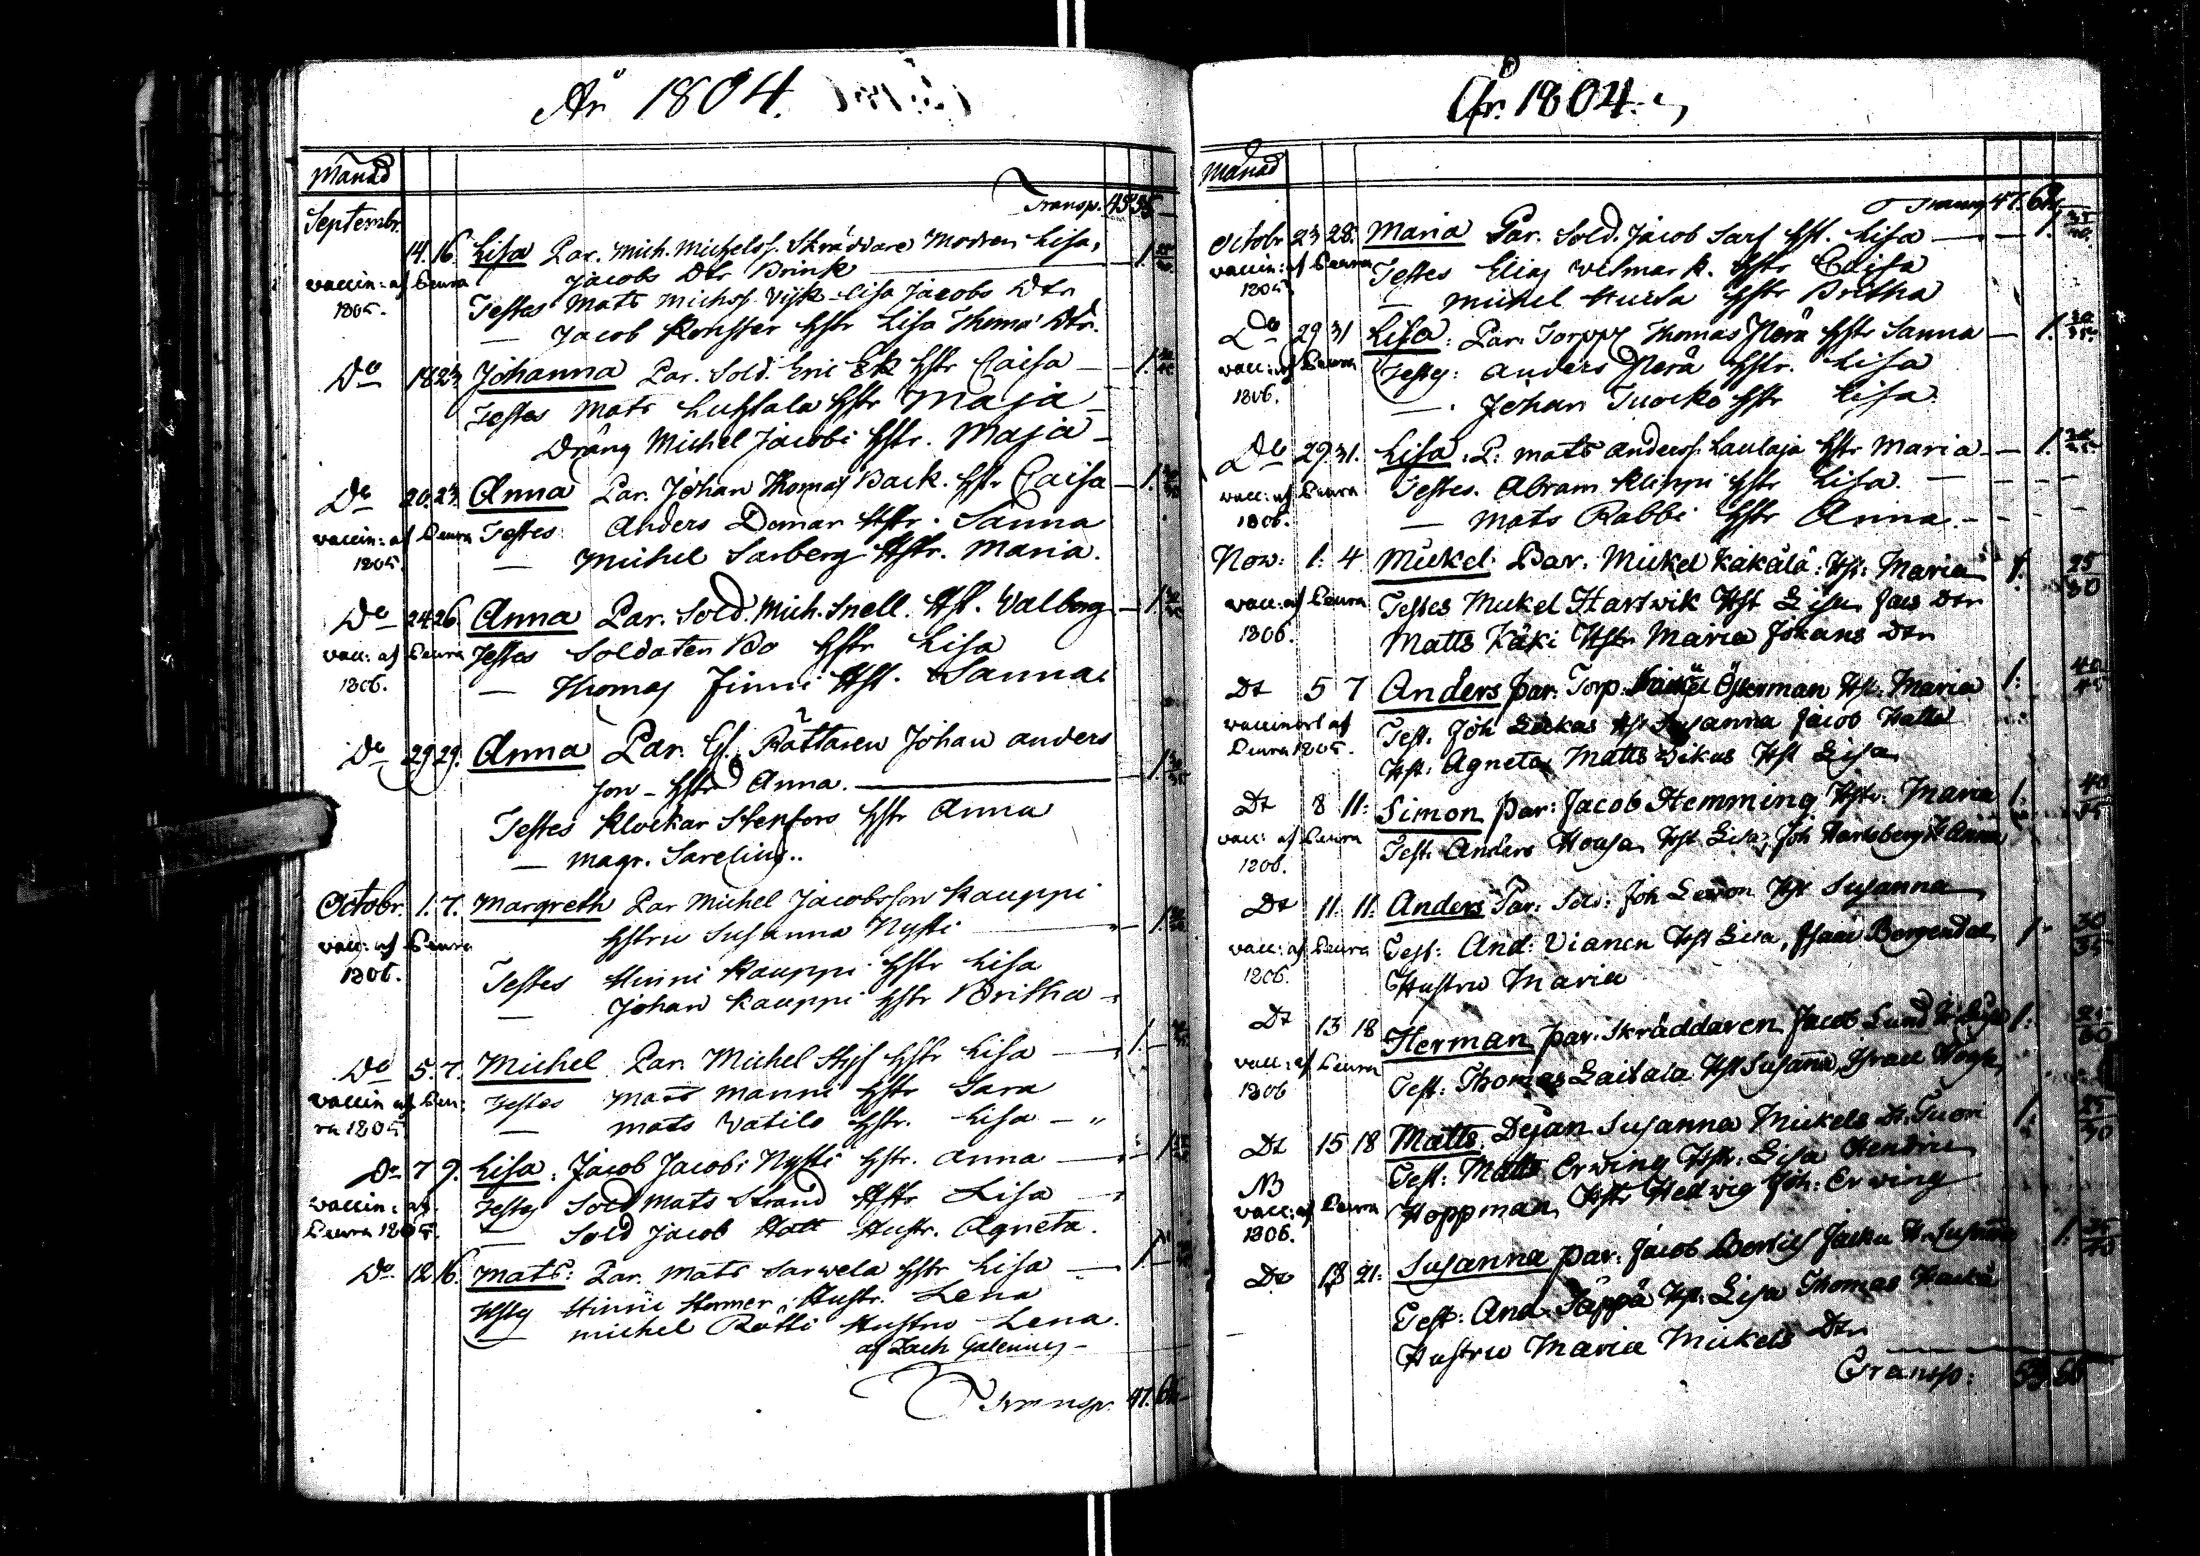 År 1804.
Månad
Transp. 45 55
Septembr.
14. 16. Lisa Par. Mich. Michelss. Skräddare Modren Lisa,
Jacobs Dtr Brink
vaccin: af Leura
1805.
Testes Mats Michss. Vijk Lisa Jacobs Dtr
— Jacob Konster Hstr Lisa Thoms Dtr.
Do 18 23 Johanna Par. Sold. Eric Ek Hstr Caisa — 1.
Testes Mats Luhtala Hstr Maja
Dräng Michel Jacobs Hstr. Maja
Do 20. 23. Anna Par. Johan Thomas Back. Hstr Caisa — 1.
vaccin: af Leura Testes Anders Domar Hstr. Sanna
1805
— Michel Sarberg Hstr. Maria.
Do 24 26. Anna Par. Sold. Mich. Snell. Hst. Valborg — 1.
vacc: af Leura Testes Soldaten Bo Hstr Lisa
1806.
— Thomas Finni Hst. Sanna
Do 29 29. Anna Par. Rättaren Johan Anders
son — Hstr Anna. — 1
Testes Klockar Stenfors Hstr Anna
— Magr. Sarelius..
Octobr. 1. 7. Margreth Par Michel Jacobsson Kauppi
Hstru Susanna Nysti — 1
vacc: af Leura
1806.
Testes Hinni Kauppi Hstr Lisa
— Johan Kauppi Hstr Britha
Do 5. 7. Michel Par. Michel Hstr Lisa — 1.
vaccin af Leu-
ra 1805
Testes Mats Manni Hstr Sara
— Mats Vatilo Hstr. Lisa — "
Do 7 9. Lisa. Jacob Jacobs Nysti Hstr. Anna — 1
vaccin: af
Leura 1805.
Testes Sold Mats Strand Hstr Lisa
— Sold Jacob Hatt Hustr. Agneta.
Do 12 16. Mats: Par. Mats Sarvela Hstr Lisa — 1
Testes Hinni Stormer Hustr. Lena
— Michel Rotti Hustru Lena.
af Zach Galenius —
Transp. 47. 62
År. 1804.
Månad
Transp 47. 62
Octobr 23 28. Maria Par. Sold. Jacob Sarf Hst. Lisa — 1.
vaccin: af Leura
1805
Testes Elias Velmark. Hstr Caisa
— Michel Hursa Hstr Britha
Do 29 31 Lisa. Par. Torpp Thomas Perä Hstr Sanna — 1.
vacc: af Leura
1806.
Testes: Anders Perä Hstr. Lisa
— Johan Tuocko Hstr Lisa.
Do 29 31. Lisa. P. Mats Anderss. Laulaja Hstr Maria — 1.
vacc: af Leura
1806.
Testes. Abram Klippi Hstr Lisa.
— Mats Rabbi Hstr Anna.
Nov: 1: 4 Mickel. Par. Mickel Käkälä: Hst: Maria 1: 25 30
vacc: af Leura
1806.
Testes Mickel Hartwik Hst Lisa Jacs Dtr
Matts Käki Hstr Maria Johans Dtr
Dt 5 7 Anders par. Torp. Österman Hst. Maria 1: 40 45
vaccinerl af
Leura 1805.
Test. Joh Hst Susanna Jacob Hatta
Hst. Agneta, Matts Hst Lisa
Dt 8 11: Simon par: Jacob Hemming Hstr: Maria 1. 40
vacc: af Leura
1806.
Test: Anders Housa, Hst Lisa, Joh Harlsberg H Anna
Dt 11: 11: Anders Par: Sold: Joh Hst Susanna
vacc: af Leura
1806.
Test: And: Vianen Hst Lisa, Isaac Borgendal 1. 30 35
Hustru Maria
Dt 13 18 Herman par. Skräddaren Jacob Lund H: 1: 25 30
vacc: af Leura
1806
Test: Thomas Laitala Hst Susanna, Israel
Dt 15 18 Matts. Dejan Susanna Mickels D. Tuori 1: 25 30
NB
vacc: af Leura
1806.
Test: Matts Erwing Hstr: Lisa Hendric
Hoppman, Hstr Hedvig Joh: Erwing
Dt 18 21: Susanna par: Jacob H. Susanna 1.
Test: And. Hst. Lisa Thomas
Hustru Maria Mickels Dtr
Transp: